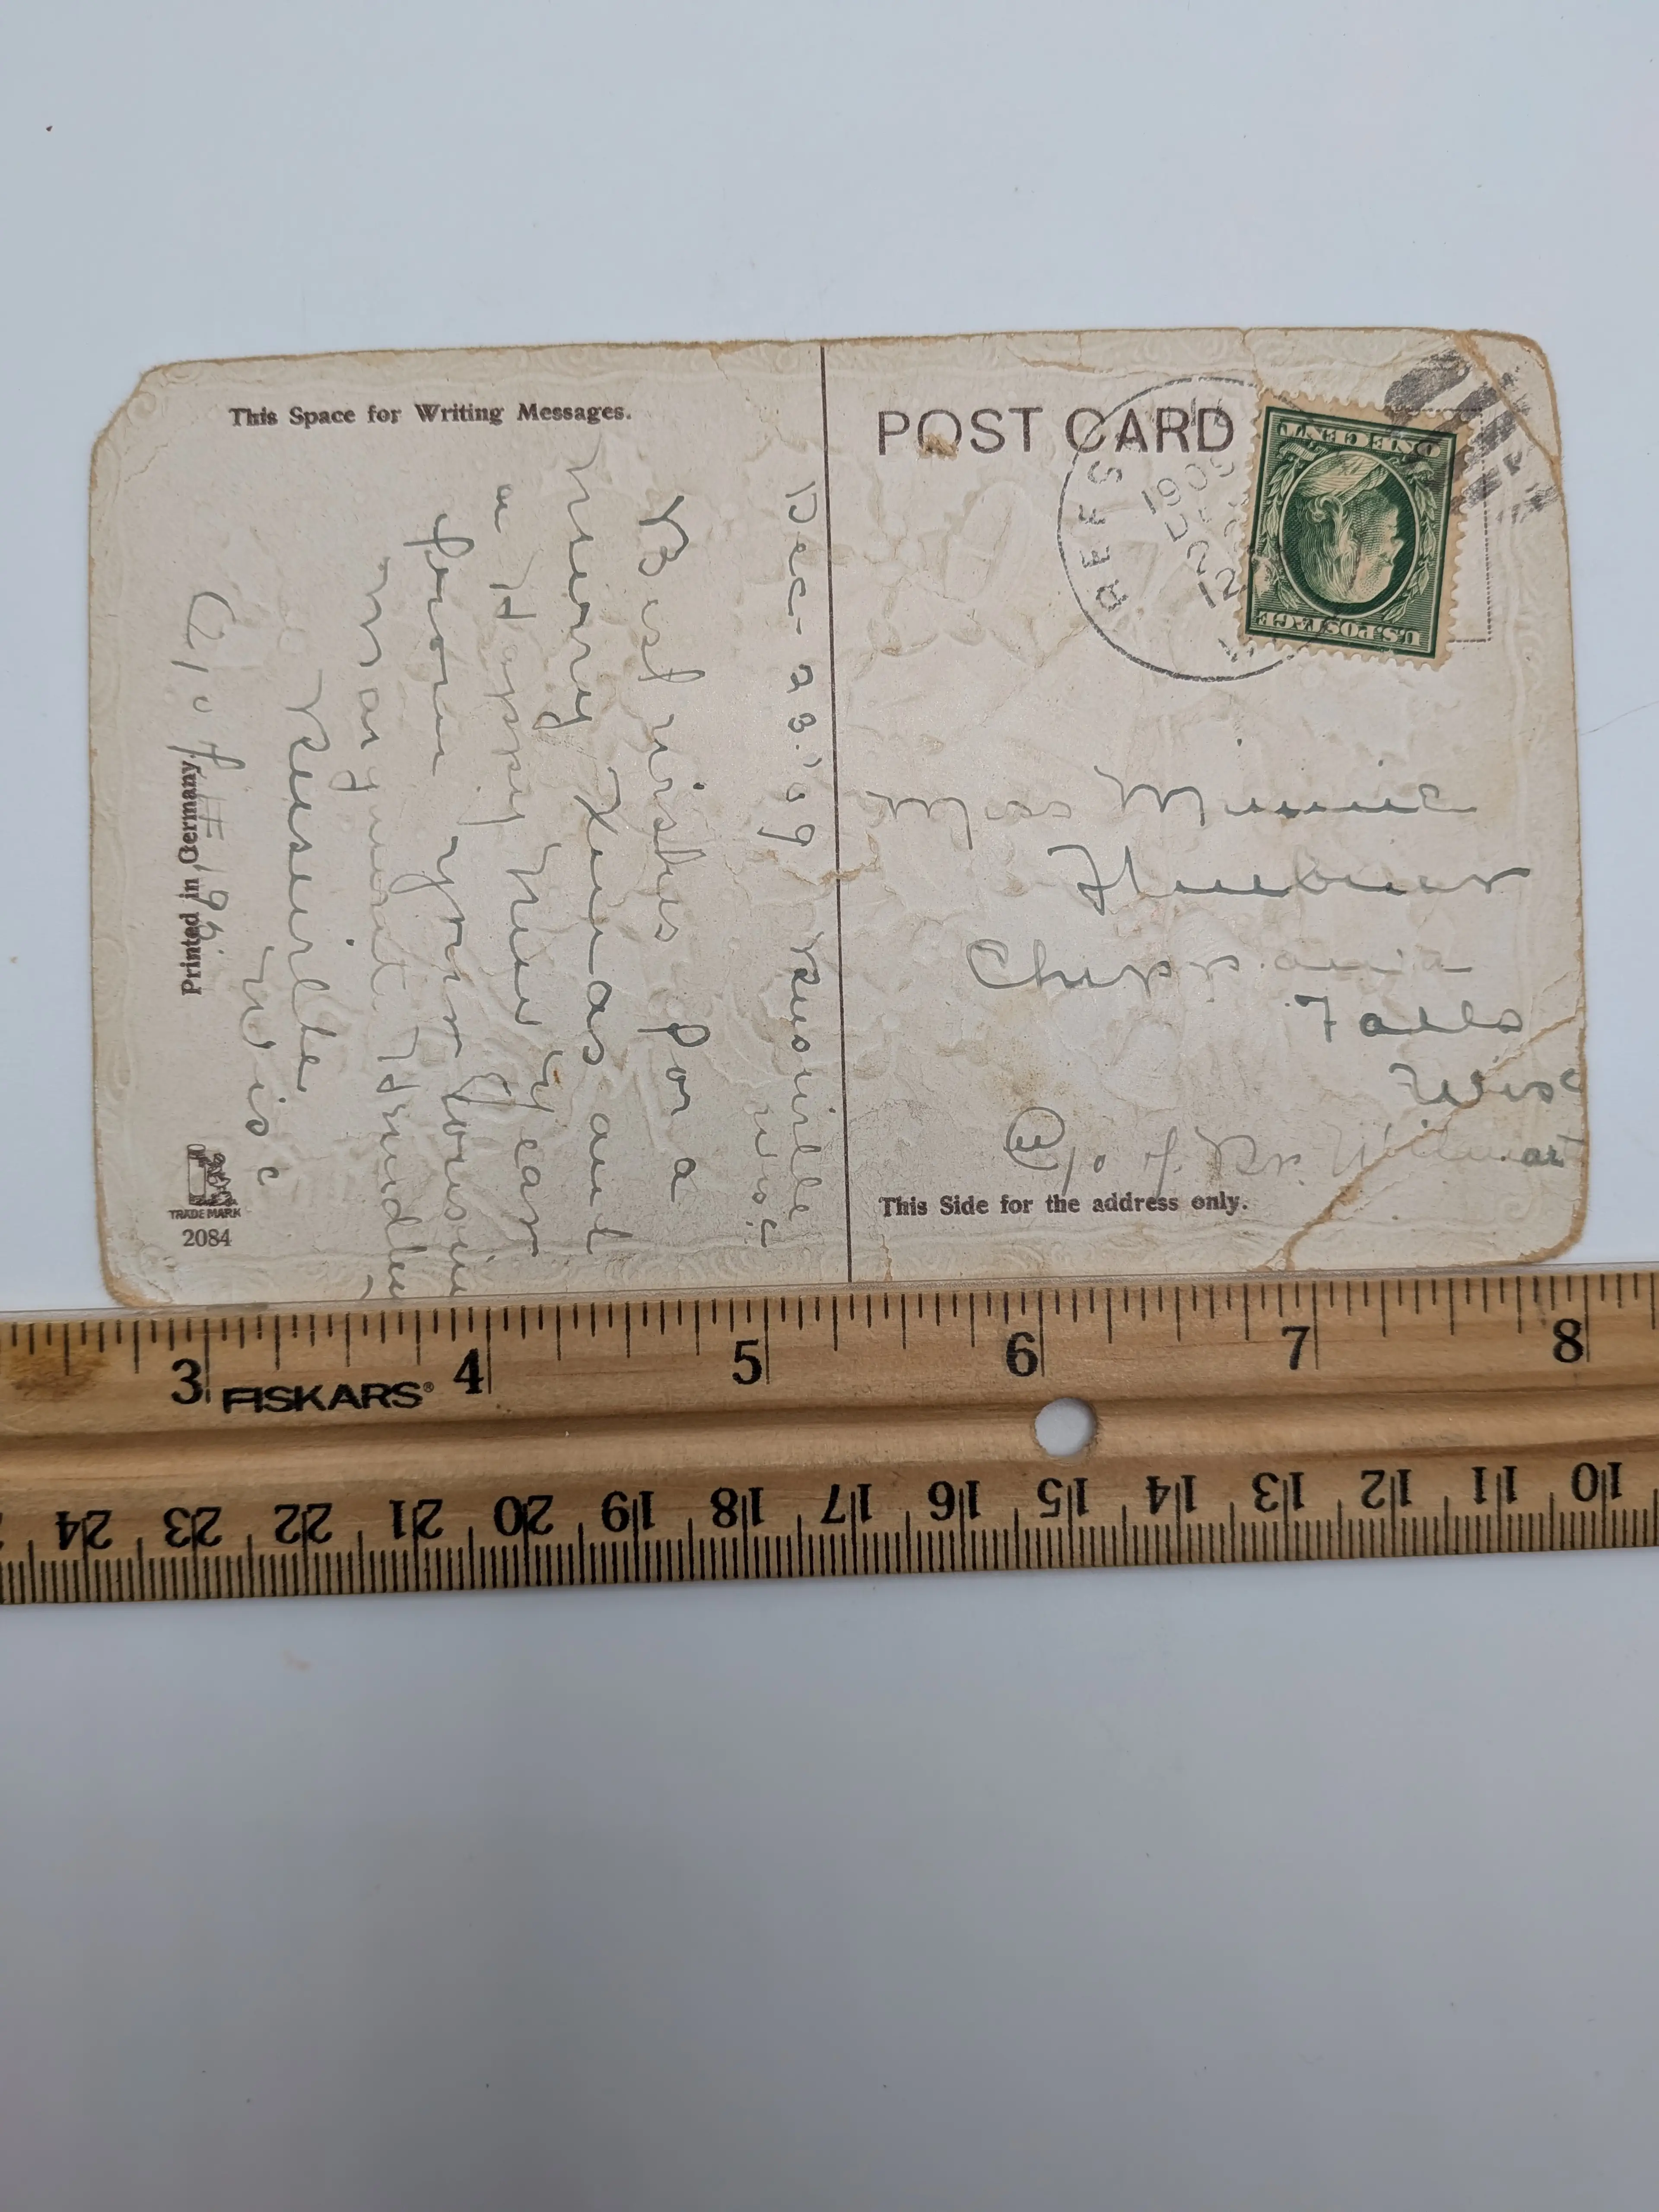 This Space for Writing Messages.
Dec - 23. '09 Reeseville
Wisc
Best wishes for a
Merry Xmas and
a Happy New Year
from your Cousin
Margaret
Reeseville
Wisc
C/o of # 19
Printed in Germany.
TRADE MARK
2084
POST CARD
REES
1909
DEC
12
U.S. POSTAGE
ONE CENT
Miss Minnie
Huebner
Chippewa
Falls
Wisc
C/o of Dr. Wilmart
This Side for the address only.
3 4 5 6 7 8
FISKARS®
24 23 22 21 20 19 18 17 16 15 14 13 12 11 10